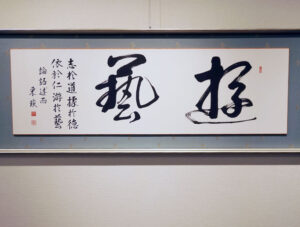 遊藝
志於道據於德
依於仁游於藝
論語述而